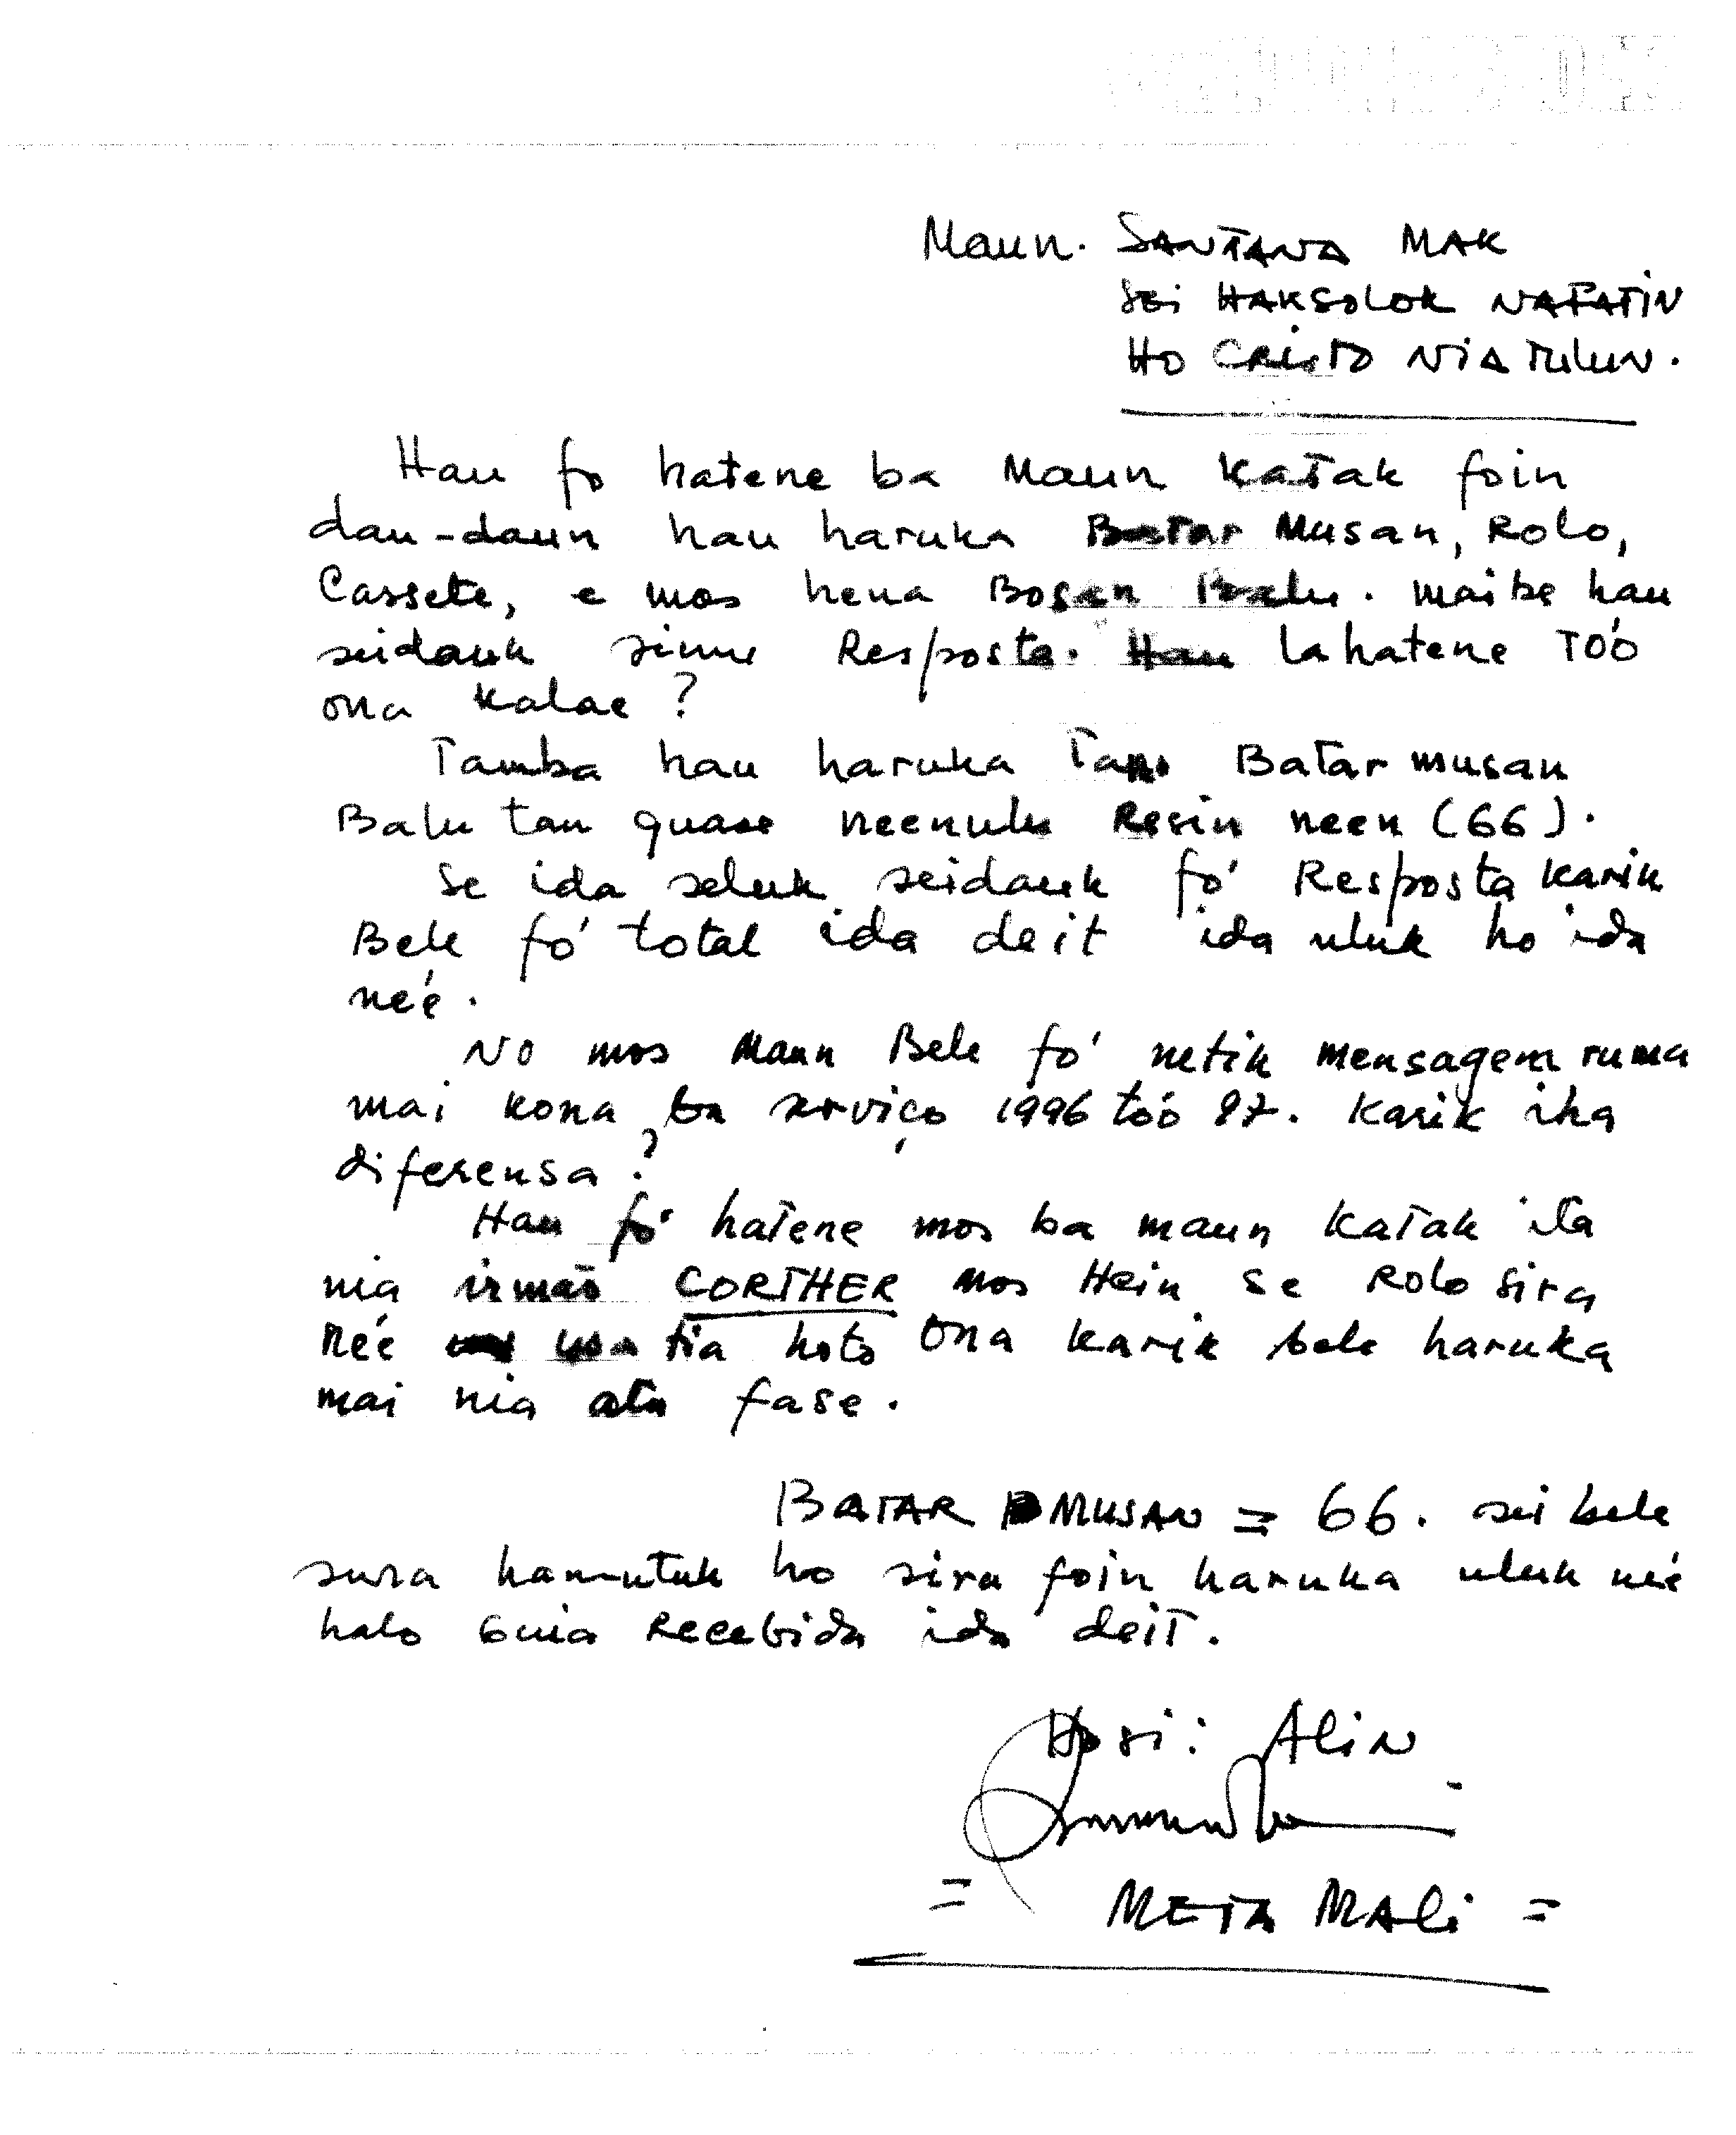 Maun. SANTANA MAK
SEi HAKSOLOK NAFATIN
HO CRISTO NiA TULUN.
Hau fo hatene ba Maun Katak foin
dau-daun hau haruka Batar Musan, Rolo,
Cassete, e mos hena Bosan Balu. maibe hau
seidauk simu Resposta. Hau la hatene Tóó
ona Kalae?
Tamba hau haruka Tan Batar musan
Balu tan quase neenulu Resin neen (66).
Se ida seluk seidauk fó Resposta Karik
Bele fó total ida deit ida uluk ho ida
neé.
NO mos Maun Bele fó netik mensagem ruma
mai kona ba serviço 1996 toó 97. Karik iha
diferensa?
Hau fó hatene mos ba maun Katak ita
nia irmão CORTHER mos Hein se Rolo sira
neé usa tia hoto Ona karik bele haruka
mai nia atu fase.
BATAR MUSAN = 66. sei bele
sura hamutuk ho sira foin haruka uluk neé
halo Guia Recebida ida deit.
Hosi: Alin
= META MALi =